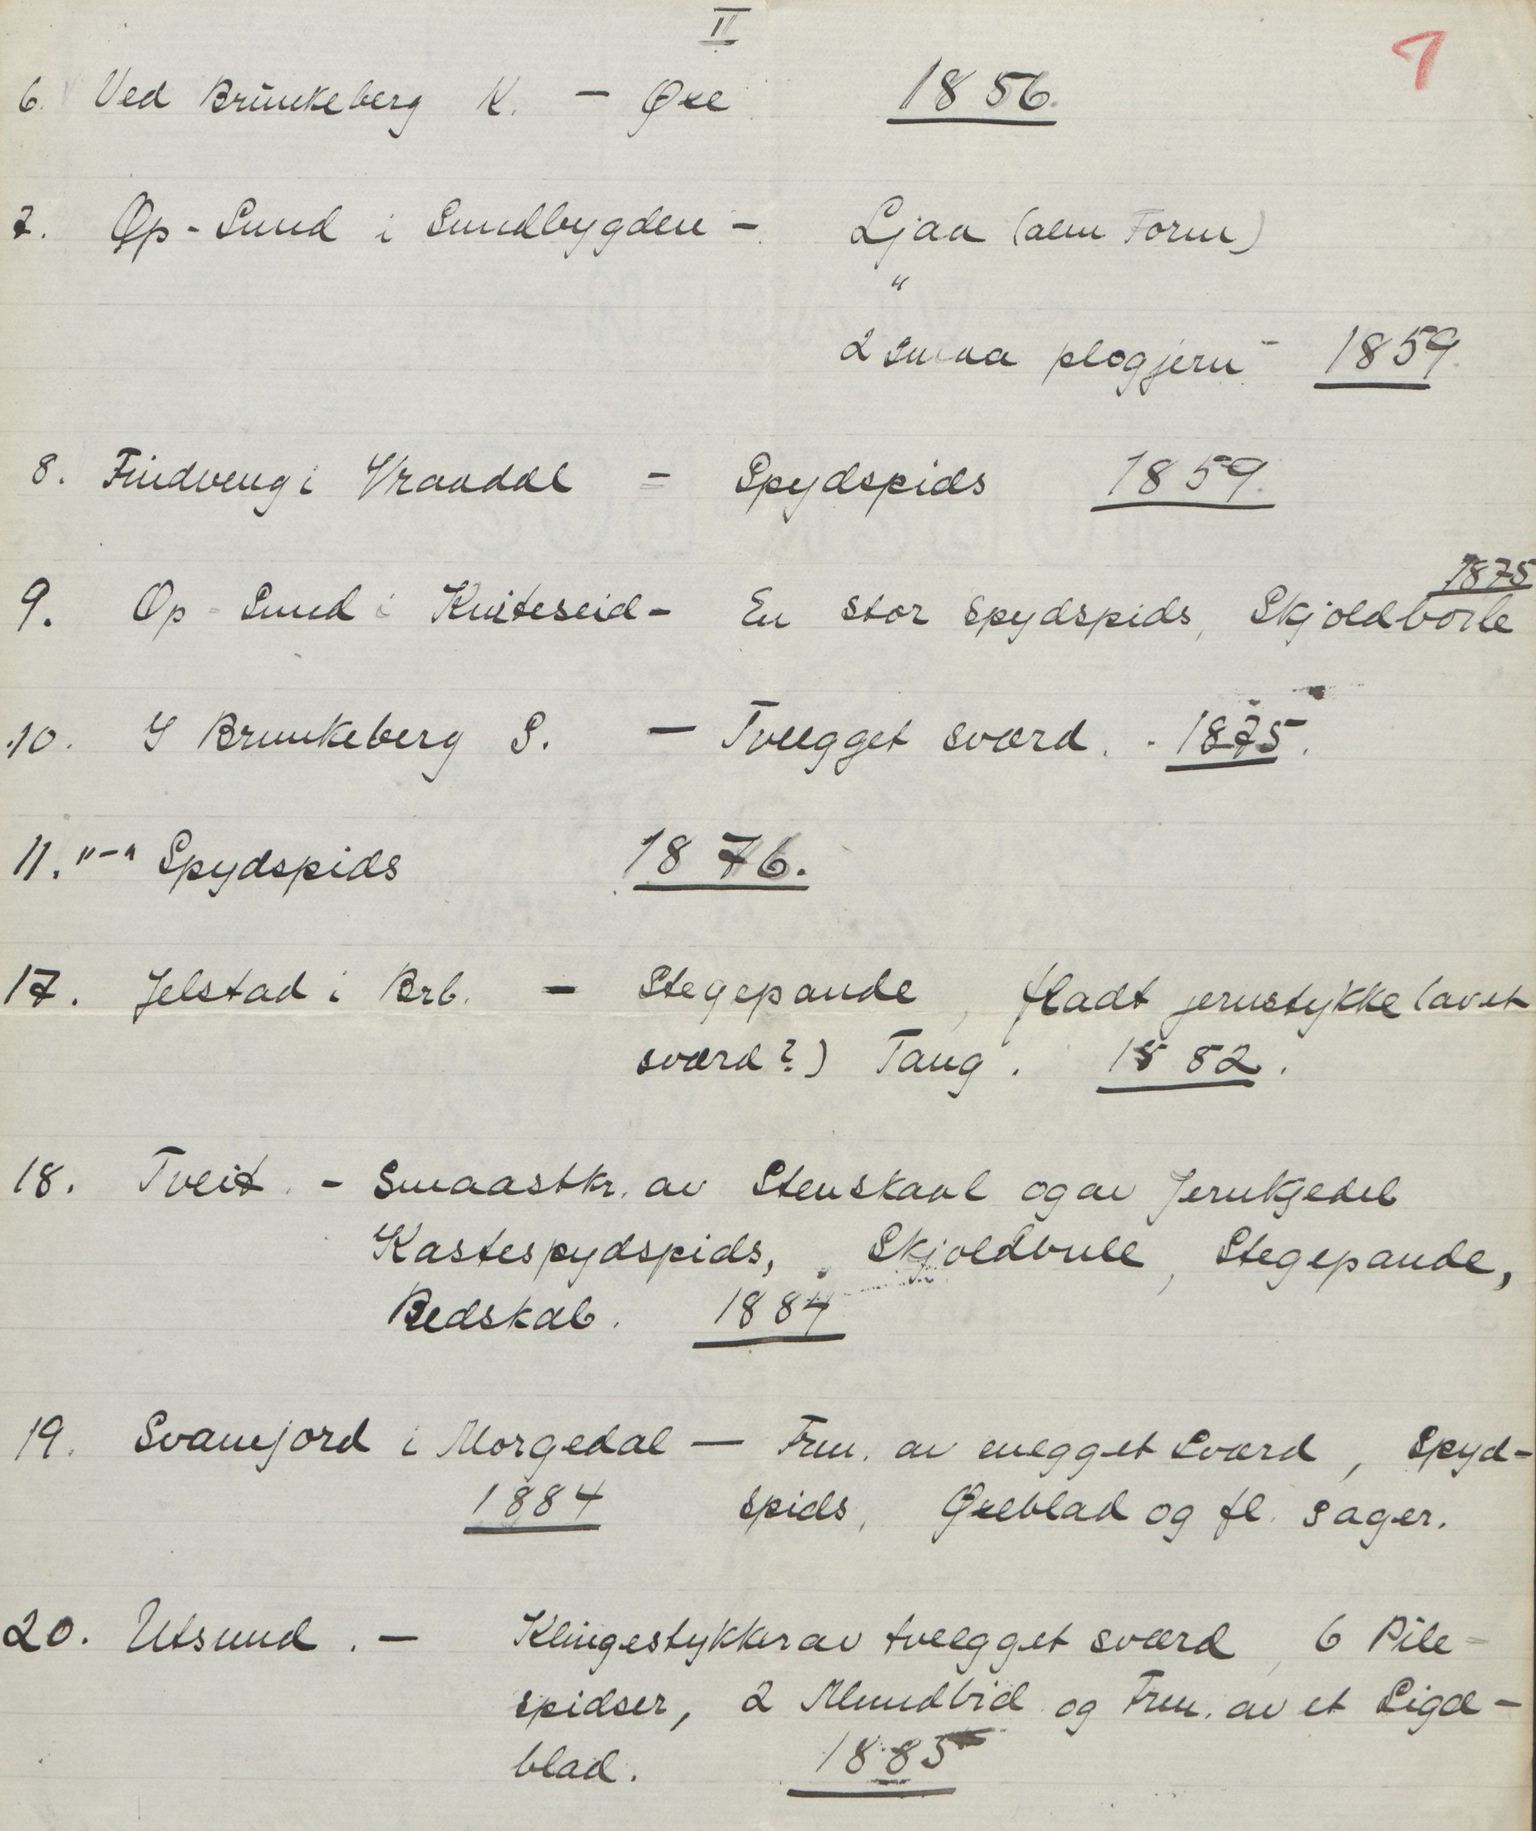 II
7
6. Ved Brunkeberg K. - Øxe 1856.
7. Op-Sund i Sundbygden - Ljaa (alm Form)
"
2 smaa plogjern - 1859.
8. Findveng i Vraadal - Spydspids 1859.
1875
9. Op-Sund i Kviteseid - En stor spydspids, Skjoldbole
10. I Brunkeberg S. - Tveegget sværd. 1875.
11. "-" Spydspids 1876.
17. Jelstad i Brb. - Stegepande, fladt jernstykke (av et
sværd?) Tang. 1882.
18. Tveit. - Smaastkr. av Stenskaal og av Jernkjedel
Kastespydspids, Skjoldbule, Stegepande,
Redskab. 1884
19. Svanejord i Morgedal - Frm. av enegget Sværd, Spyd-
1884 spids, Øxeblad og fl. sager.
20. Utsund. - Klingestykker av tveegget sværd, 6 Pile-
spidser, 2 Mundbid og Frm. av et Sigd-
blad. 1885